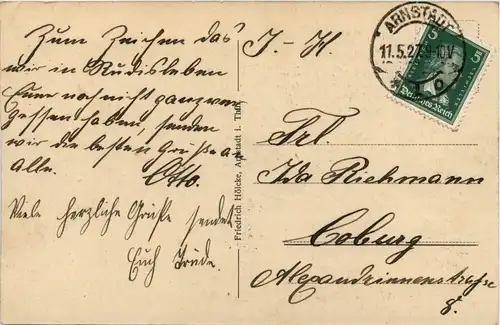 Zum Zeichen das
wir in Rudisleben
Eure noch nicht ganz ver
gessen haben, senden
wir die besten Grüße a.
alle.
Otto.
Viele herzliche Grüße sendet
Euch Trude.
Friedrich Hölcke, Arnstadt i. Thür.
J.-H.
ARNSTADT
11.5.27.9-10V
5 5
Deutsches Reich
Frl.
Ida Riehmann
Coburg
Alexandrinenstraße
8.